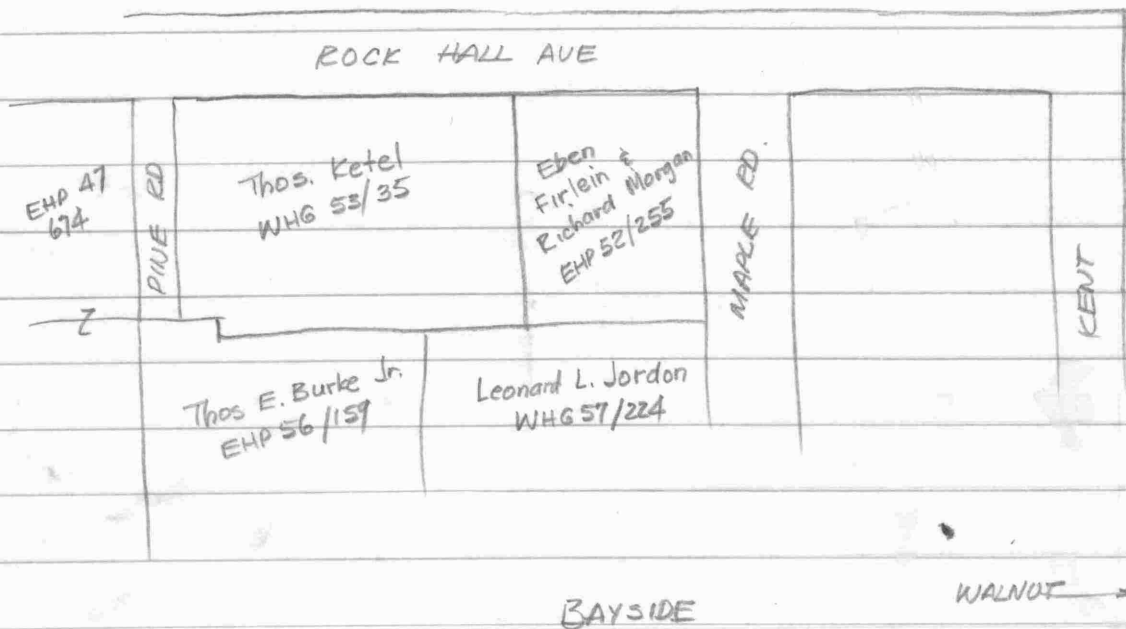 ROCK HALL AVE
EHP 47
674
PINE RD
Thos. Ketel
WHG 53/35
Eben
Firlein &
Richard Morgan
EHP 52/255
MAPLE RD.
KENT
Z
Thos E. Burke Jr.
EHP 56/159
Leonard L. Jordon
WHG 57/224
WALNUT
BAYSIDE